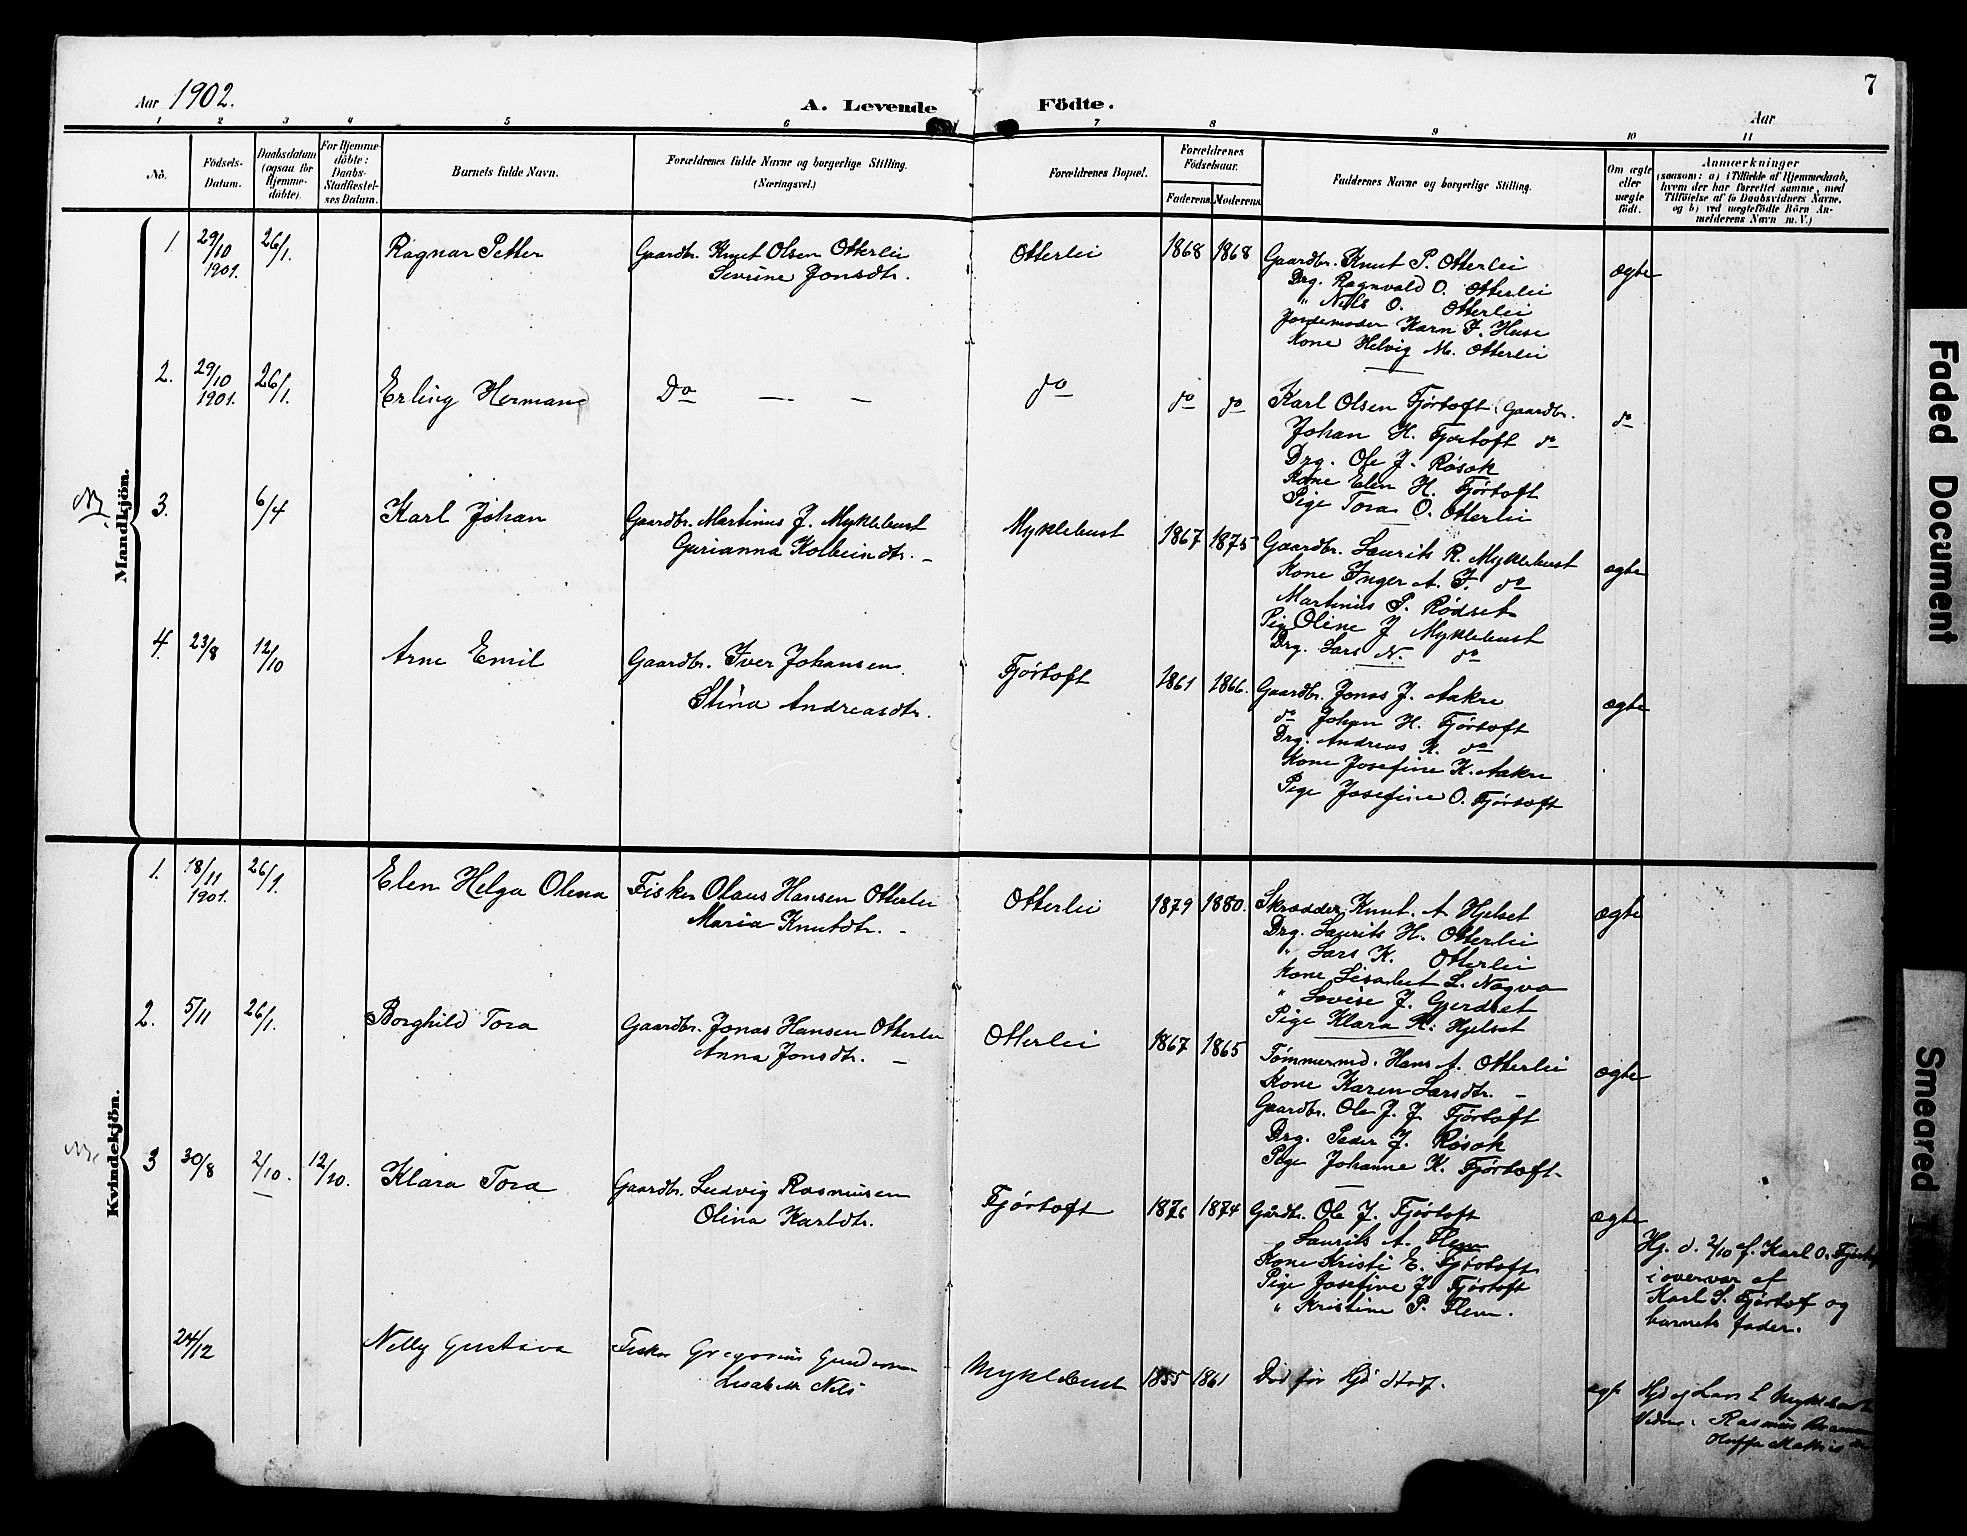 7
Aar 1902.
A. Levende Födte.
Aar
1 2 3 4 5 6 7 8 9 10 11
No.
Födsels-
Datum.
Daabsdatum
(ogsaa for
Hjemme-
döbte).
For Hjemme-
döbte:
Daabs-
Stadfæstel-
ses Datum.
Barnets fulde Navn.
Forældrenes fulde Navne og borgerlige Stilling.
(Næringsvei.)
Forældrenes Bopæl.
Forældrenes
Födselsaar.
Faderens. Moderens.
Faddernes Navne og borgerlige Stilling.
Om ægte
eller
uægte
födt.
Anmærkninger
(saasom: a) i Tilfælde af Hjemmedaab,
hvem der har forrettet samme, med
Tilföielse af to Daabsvidners Navne,
og b) ved uægtefödte Börn An-
melderens Navn m. V.)
Mandkjön.
1. 29/10 1901. 26/1. Ragnar Petter
Gaardbr. Knut Olsen Otterlei
Sevrine Jonsdtr.
Otterlei 1868 1868
Gaardbr. Knut P. Otterlei
Drg. Ragnvald O. Otterlei
" Nils O. Otterlei
Jordemoder Karn J. Huse
Kone Helvig M. Otterlei
ægte
2. 29/10 1901. 26/1. Erling Herman
Do — —
do do do
Karl Olsen Fjørtoft Gaardbr.
Johan H. Fjørtoft do
Drg. Ole J. Røsok
Kone Elen H. Fjørtoft
Pige Tora O. Otterlei
do
3. 6/4 Karl Johan
Gaardbr. Martinus J. Myklebust
Gurianna Kolbeindtr. –
Myklebust 1867 1875
Gaardbr. Laurits R. Myklebust
Kone Inger A. J. do
Martinus P. Rødset
Pige Oline J Myklebust
Drg. Lars N. do
ægte
4. 23/8 12/10 Arne Emil
Gaardbr. Iver Johansen.
Stina Andreasdtr.
Fjørtoft 1861 1866.
Gaardbr. Jonas J. Aakre
do Johan H. Fjørtoft
Drg. Andreas K. do
Kone Josefine K. Aakre
Pige Josefine O. Fjørtoft
ægte
Kvindekjön.
1. 18/11 1901. 26/1. Elen Helga Olena
Fisker Olaus Hansen Otterlei
Maria Knutdtr. –
Otterlei 1879 1880.
Skrædder Knut. A Hjelset
Drg. Laurits H. Otterlei
" Lars K. Otterlei
Kone Lisabet L. Nogva
" Lovise J. Gjerdset
Pige Klara K. Hjelset
ægte
2. 5/11 26/1. Borghild Tora
Gaardbr. Jonas Hansen Otterlei
Anna Jonsdtr. –
Otterlei 1867 1865
Tømmermd. Hans A. Otterlei
Kone Karen Larsdtr. –
Gaardbr. Ole J. J Fjørtoft
Drg. Peder J. Røsok
Pige Johanne K. Fjørtoft.
ægte
3 30/8 2/10. 12/10. Klara Tora
Gaardbr. Ludvig Rasmusen
Olina Karldtr.
Fjørtoft 1876 1874
Gårdbr. Ole J. Fjørtoft
Laurits A. Flem
Kone Kristi E. Fjørtoft
Pige Josefine J Fjørtoft
" Kristine P. Flem.
ægte
Hj. d. 2/10 af. Karl O. Fjørtoft
i overvær af
Karl S. Fjørtof og
barnets fader.
24/12 Nelly Gustava
Fisker Gregorius Gundersen
Lisabeth Nils
Myklebust 1855 1861
Død før Hjd stadf.
ægte
Hjd af Lars L Myklebust
Vidne. Rasmus
Faded Document
Smeared